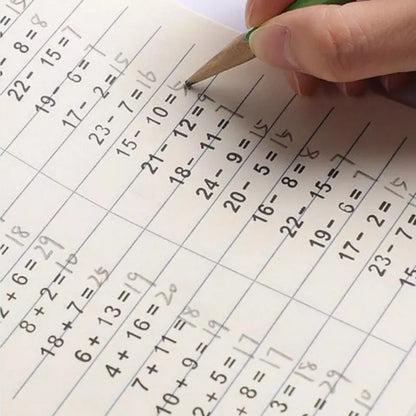 - 8 = 8
22 - 15 = 7
19 - 6 = 7
17 - 2 = 15
23 - 7 = 16
15 - 10 = 5
21 - 12 = 9
18 - 11 = 7
24 - 9 = 15
20 - 5 = 15
16 - 8 = 8
22 - 15 = 7
19 - 6 = 7
17 - 2 = 15
23 - 7 =
= 18
2 + 6 = 29
8 + 2 = 10
18 + 7 = 25
6 + 13 = 19
4 + 16 = 20
7 + 11 = 18
10 + 9 = 19
2 + 5 = 17
+ 8 = 17
3 = 18
= 29
10